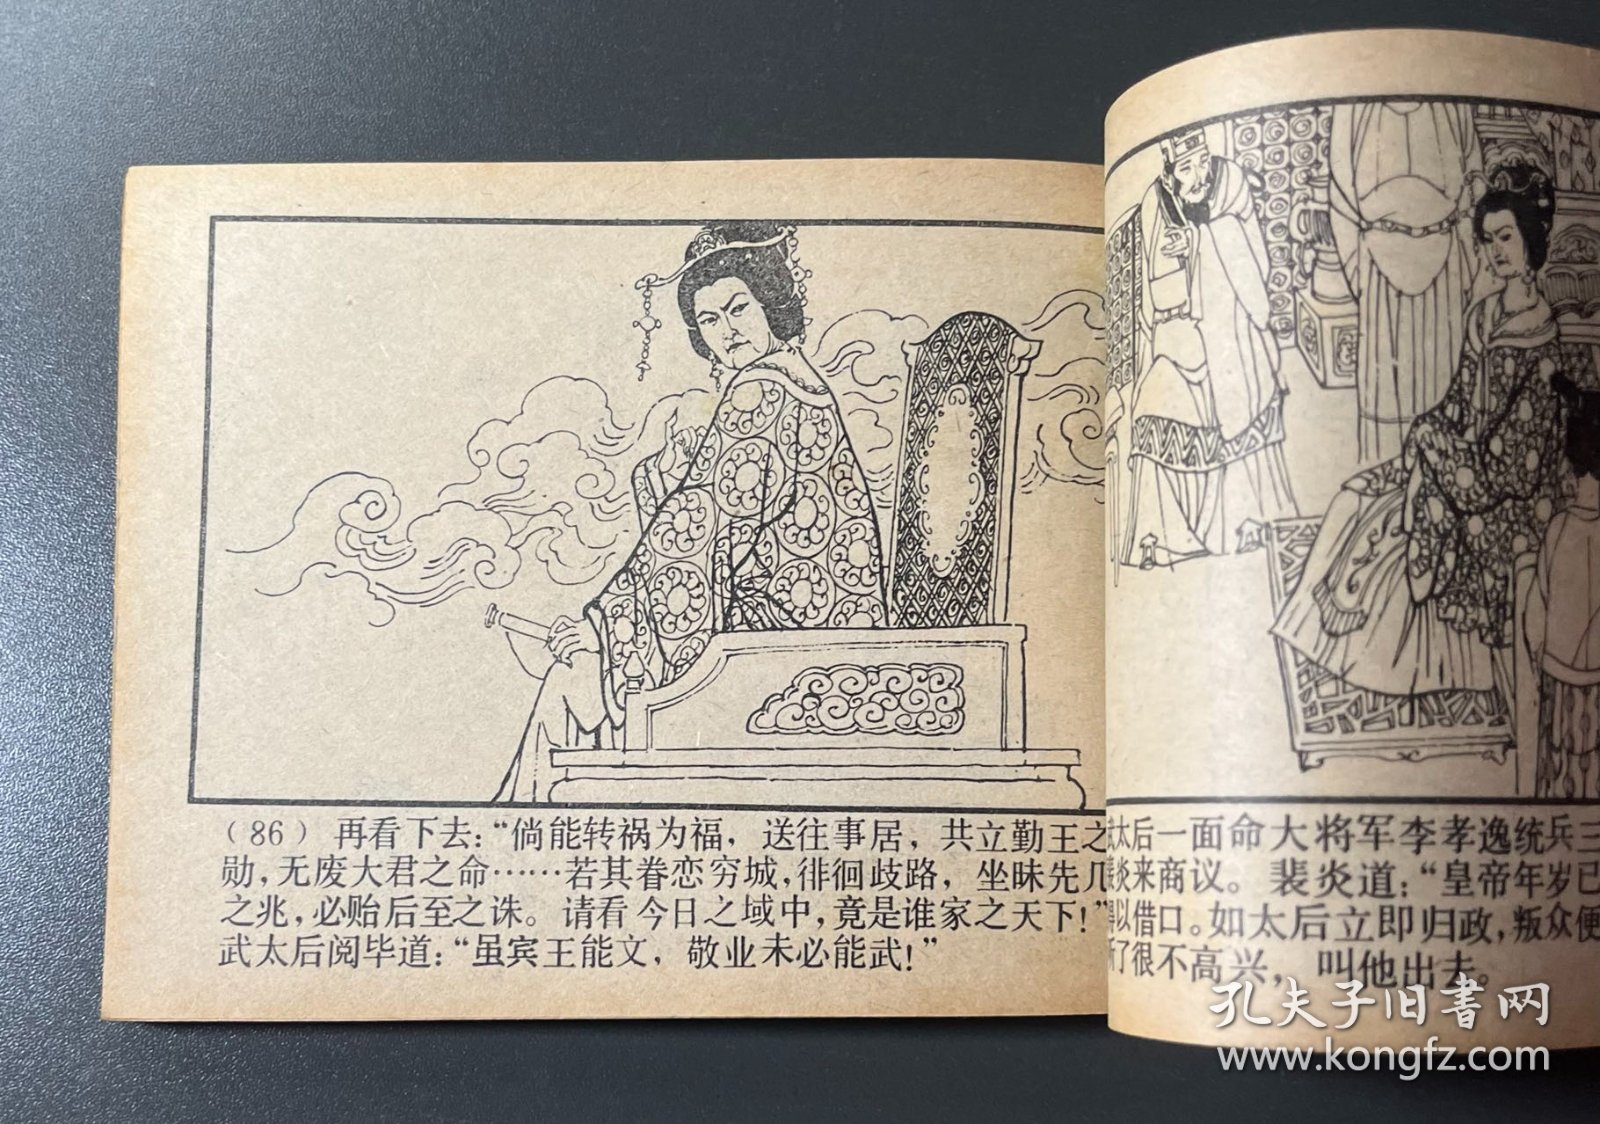 （86） 再看下去：“倘能转祸为福，送往事居，共立勤王之
勋，无废大君之命……若其眷恋穷城，徘徊歧路，坐昧先几
之兆，必贻后至之诛。请看今日之域中，竟是谁家之天下！”
武太后阅毕道：“虽宾王能文，敬业未必能武！”
武太后一面命大将军李孝逸统兵三
裴炎来商议。裴炎道：“皇帝年岁已
得以借口。如太后立即归政，叛众便
听了很不高兴，叫他出去。
孔夫子旧书网
www.kongfz.com